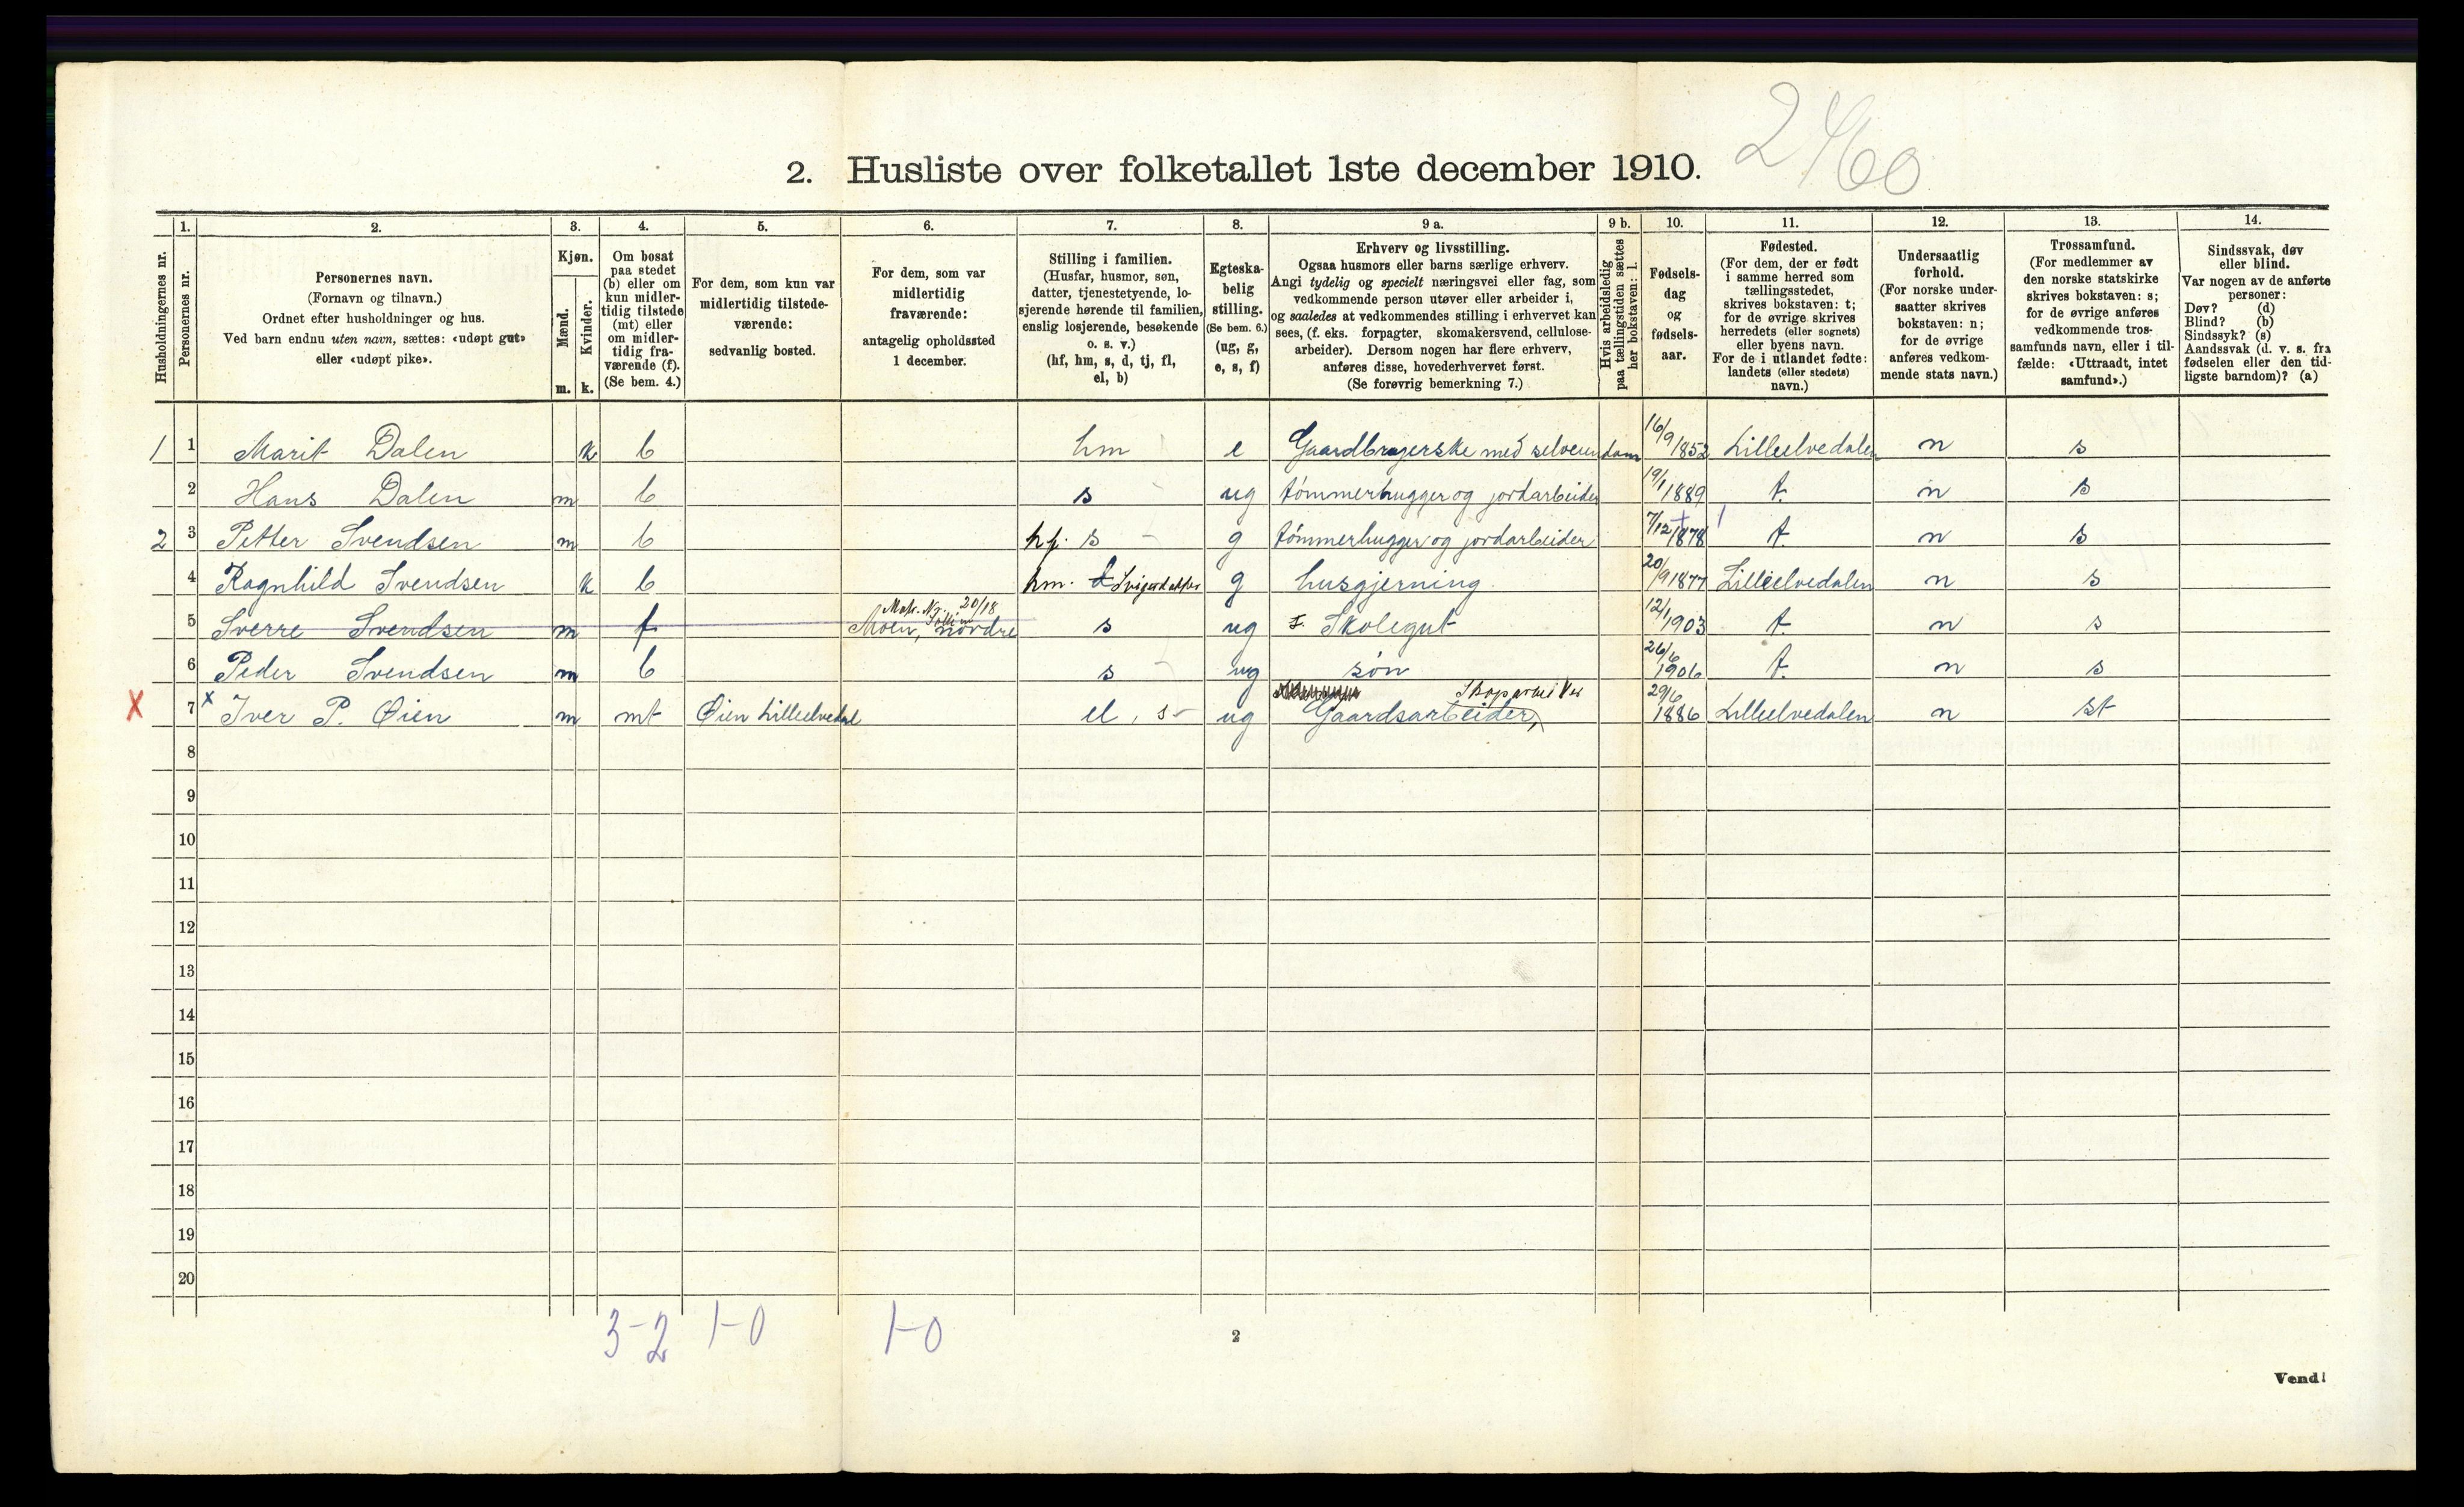 2460
2. Husliste over folketallet 1ste december 1910.
Husholdningernes nr.
1.
Personernes nr.
2.
Personernes navn.
(Fornavn og tilnavn.)
Ordnet efter husholdninger og hus.
Ved barn endnu uten navn, sættes: «udøpt gut»
eller «udøpt pike».
3.
Kjøn.
Mænd.
Kvinder.
m. k.
4.
Om bosat
paa stedet
(b) eller om
kun midler-
tidig tilstede
(mt) eller
om midler-
tidig fra-
værende (f).
(Se bem. 4.)
5.
For dem, som kun var
midlertidig tilstede-
værende:
sedvanlig bosted.
6.
For dem, som var
midlertidig
fraværende:
antagelig opholdssted
1 december.
7.
Stilling i familien.
(Husfar, husmor, søn,
datter, tjenestetyende, lo-
sjerende hørende til familien,
enslig losjerende, besøkende
o. s. v.)
(hf, hm, s, d, tj, fl,
el, b)
8.
Egteska-
belig
stilling.
(Se bem. 6.)
(ug, g,
e, s, f)
9 a.
Erhverv og livsstilling.
Ogsaa husmors eller barns særlige erhverv.
Angi tydelig og specielt næringsvei eller fag, som
vedkommende person utøver eller arbeider i,
og saaledes at vedkommendes stilling i erhvervet kan
sees, (f. eks. forpagter, skomakersvend, cellulose-
arbeider). Dersom nogen har flere erhverv,
anføres disse, hovederhvervet først.
(Se forøvrig bemerkning 7.)
9 b.
Hvis arbeidsledig
paa tællingstiden sættes
her bokstaven: l.
10.
Fødsels-
dag
og
fødsels-
aar.
11.
Fødested.
(For dem, der er født
i samme herred som
tællingsstedet,
skrives bokstaven: t;
for de øvrige skrives
herredets (eller sognets)
eller byens navn.
For de i utlandet fødte:
landets (eller stedets)
navn.)
12.
Undersaatlig
forhold.
(For norske under-
saatter skrives
bokstaven: n;
for de øvrige
anføres vedkom-
mende stats navn.)
13.
Trossamfund.
(For medlemmer av
den norske statskirke
skrives bokstaven: s;
for de øvrige anføres
vedkommende tros-
samfunds navn, eller i til-
fælde: «Uttraadt, intet
samfund».)
14.
Sindssvak, døv
eller blind.
Var nogen av de anførte
personer:
Døv? (d)
Blind? (b)
Sindssyk? (s)
Aandssvak (d. v. s. fra
fødselen eller den tid-
ligste barndom)? (a)
1 1 Marit Dalen k b hm e Gaardbrugerske med selveiendom 16/9 1852 Lilleelvedalen n s
2 Hans Dalen m b s ug tømmerhugger og jordarbeider 19/1 1889 t. n s
2 3 Petter Svendsen m b hf. s g tømmerhugger og jordarbeider 7/12 1878 t. n s
4 Ragnhild Svendsen k b hm. d Svigerdatter g husgjerning 20/9 1877 Lilleelvedalen n s
5 Sverre Svendsen m f Matr. Nr. 20/18 Moen, nordre s ug Skolegut 12/1 1903 t. n s
6 Peder Svendsen m b s ug søn 26/6 1906 t. n s
X 7 x Iver P. Øien m mt Øien Lilleelvedal el, s- ug Skogsarbeider Gaardsarbeider, 29/6 1886 Lilleelvedalen n st
8
9
10
11
12
13
14
15
16
17
18
19
20
3-2 1-0 1-0
2
Vend!